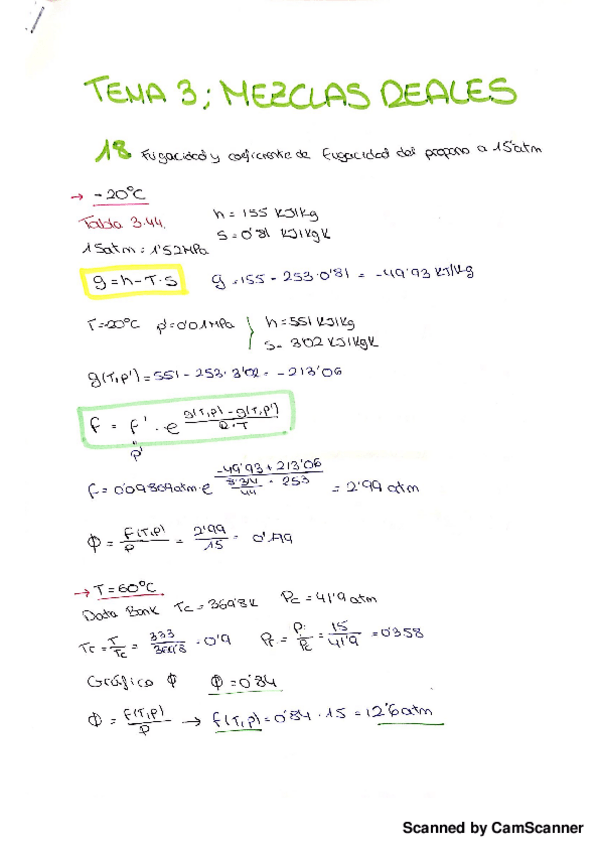 TEMA 3; MEZCLAS REALES
18. Fugacidad y coeficiente de fugacidad del propano a 15 atm
→ -20ºC
Tabla 3.44.
h = 155 KJ/Kg
s = 0'81 KJ/KgK
15atm = 1'52 MPa
g = h - T·s
g = 155 - 253·0'81 = -49'93 KJ/Kg
T=-20ºC p'=0'01MPa } h = 551 KJ/Kg
s = 3'02 KJ/KgK
g(T,p') = 551 - 253·3'02 = -213'06
f = f' · e^((g(T,p) - g(T,p'))/(R·T))
"
p'
f = 0'09869atm·e^((-49'93 + 213'06)/((8'314/44)·253)) = 2'99 atm
Φ = f(T,p)/p = 2'99/15 = 0'199
→ T=60ºC
Data Bank Tc = 369'8K Pc = 41'9 atm
Tr = T/Tc = 333/369'8 = 0'9 Pr = P/Pc = 15/41'9 = 0'358
Gráfico Φ Φ = 0'84
Φ = f(T,p)/p → f(T,p) = 0'84 · 15 = 12'6 atm
Scanned by CamScanner